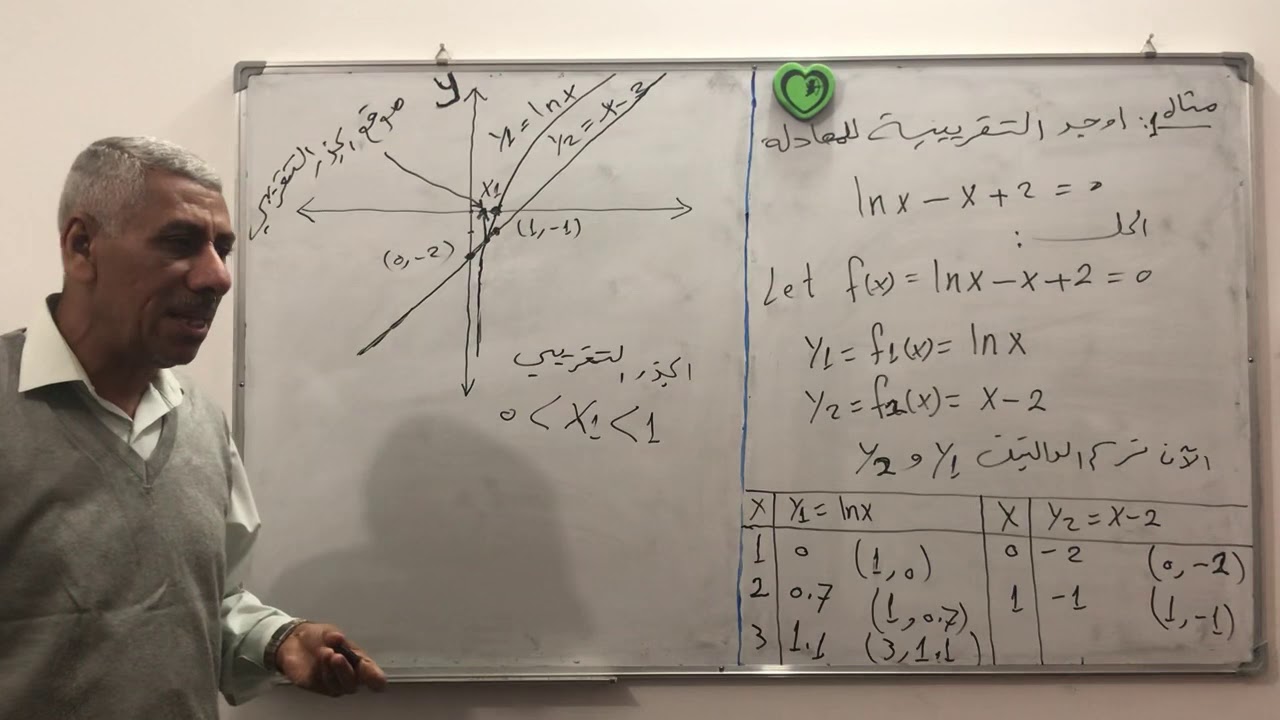 مثال 1: اوجد التقريبية للمعادلة
ln x - x + 2 = 0
الحل :
Let f(x) = ln x - x + 2 = 0
y1 = f1(x) = ln x
y2 = f2(x) = x - 2
الآن نرسم الدالتين y1 و y2
X | y1 = ln x | X | y2 = x - 2
1 | 0 (1, 0) | 0 | -2 (0, -2)
2 | 0.7 (1, 0.7) | 1 | -1 (1, -1)
3 | 1.1 (3, 1.1)
y
y1 = ln x
y2 = x - 2
موقع الجذر التقريبي
x1
(1, -1)
(0, -2)
الجذر التقريبي
0 < x1 < 1